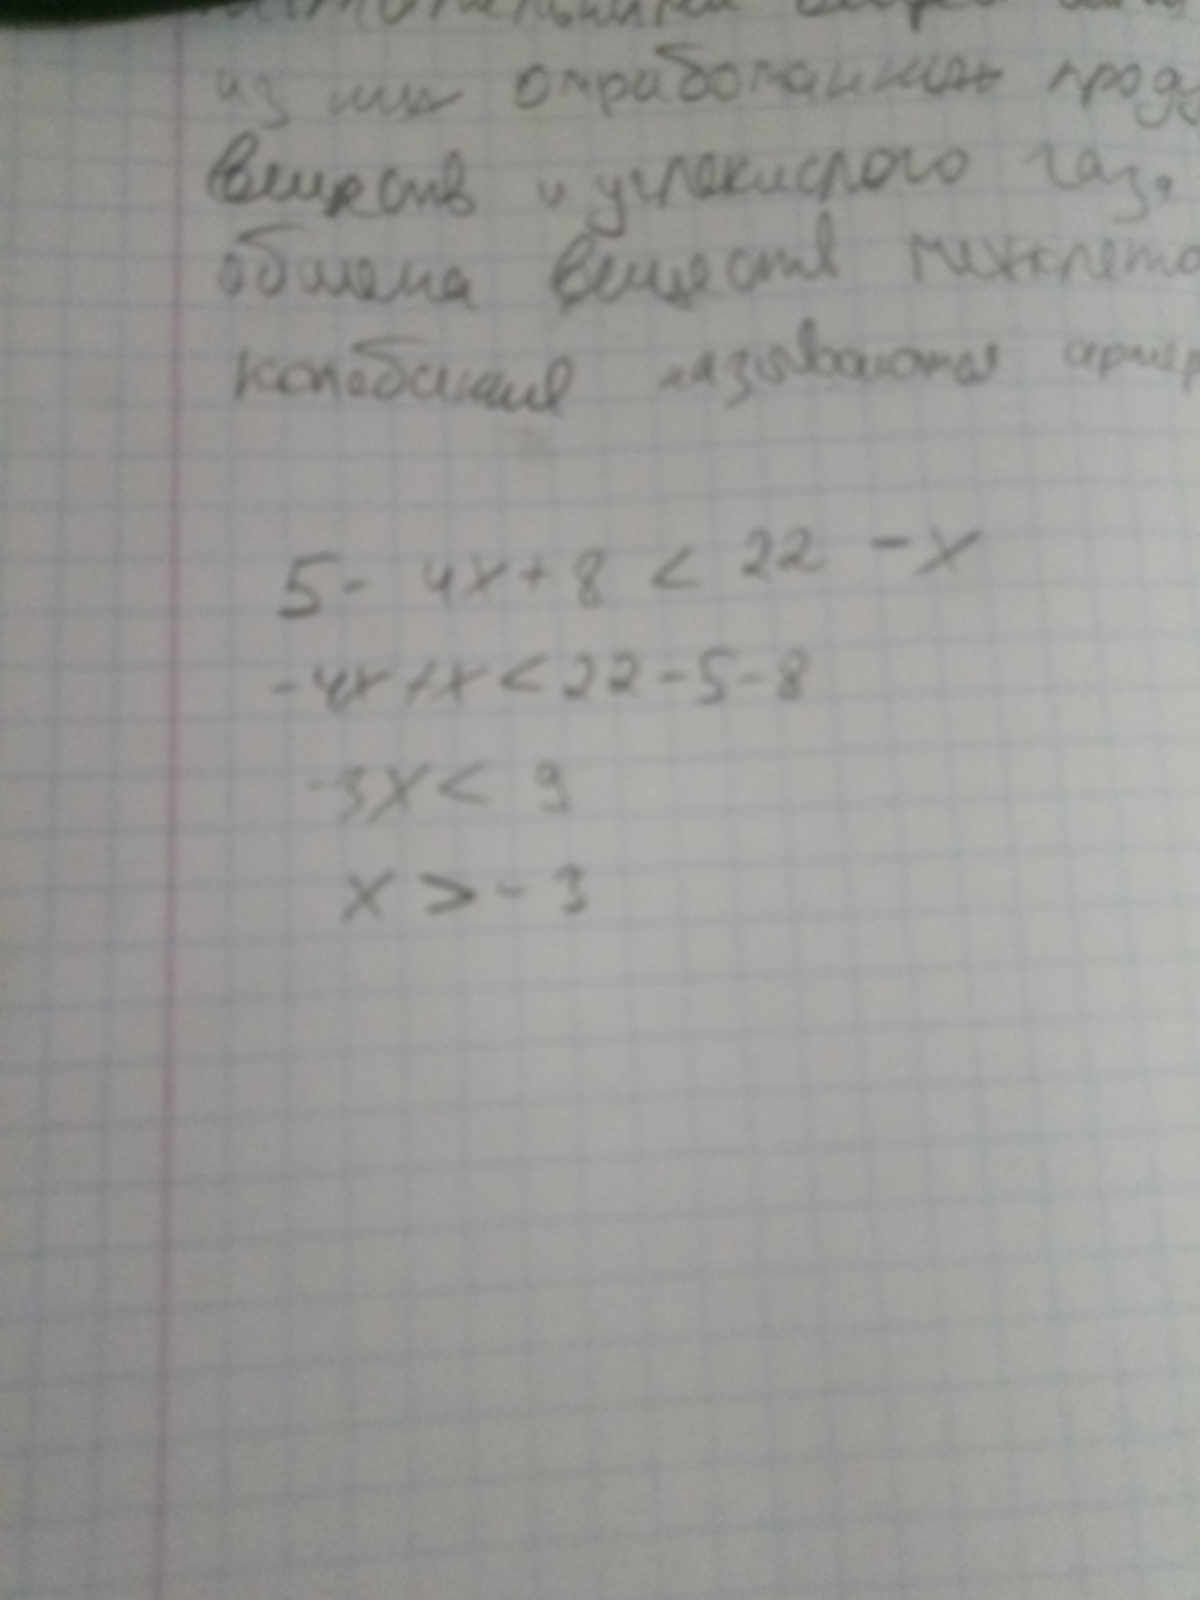 из них отработанных
веществ и углекислого газ
обмена веществ
колебания называются
5 - 4x + 8 < 22 - x
-4x + x < 22 - 5 - 8
-3x < 9
x > -3